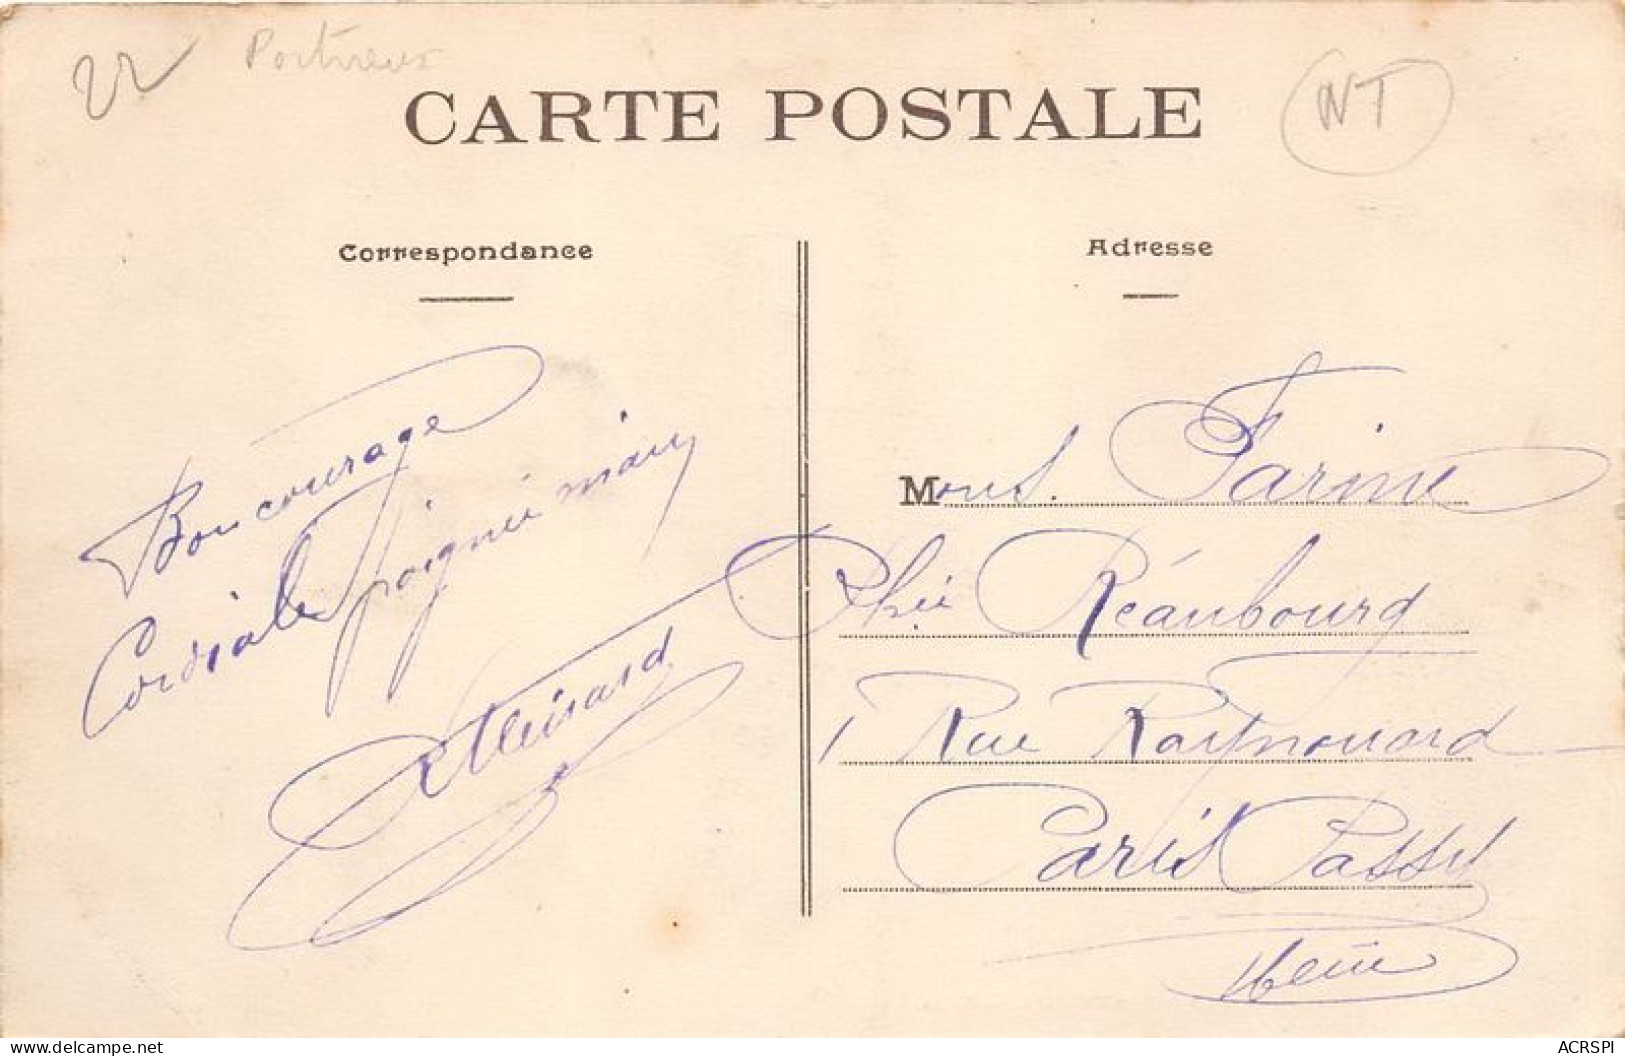 22 Portrieux
NT
CARTE POSTALE
Correspondance
Adresse
Bon courage
Cordiale poignée main
Mons. Farine
Phie Réaubourg
1 Rue Raynouard
Paris Passy
16eme
delcampe.net
ACRSPI